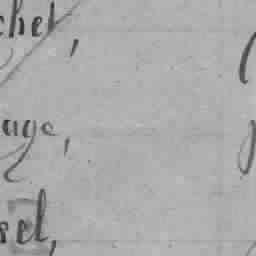 chet,
age,
sel,